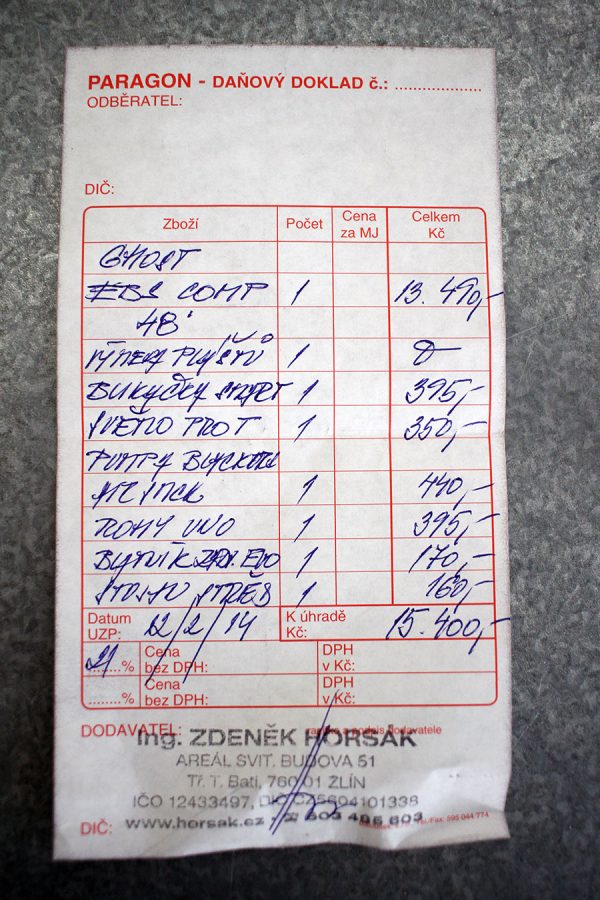 PARAGON - DAŇOVÝ DOKLAD č.: ....................
ODBĚRATEL:
DIČ:
Zboží Počet Cena za MJ Celkem Kč
GHOST
EBS COMP 1 13.490,-
48'
VÝMĚNA PLÁŠŤŮ 1 0
1 395,-
SVĚTLO 1 350,-
PUMPA BLACKBURN
1 440,-
ROHY UNO 1 395,-
1 170,-
1 160,-
Datum UZP: 12/2/14 K úhradě Kč: 15.400,-
21 ........% Cena bez DPH: DPH v Kč:
........% Cena bez DPH: DPH v Kč:
DODAVATEL: razítko a podpis dodavatele
Ing. ZDENĚK HORSÁK
AREÁL SVIT. BUDOVA 51
Tř. T. Bati, 760 01 ZLÍN
IČO 12433497, DIČ CZ5604101338
DIČ: www.horsak.cz, 603 495 603
Tel/Fax: 595 044 774